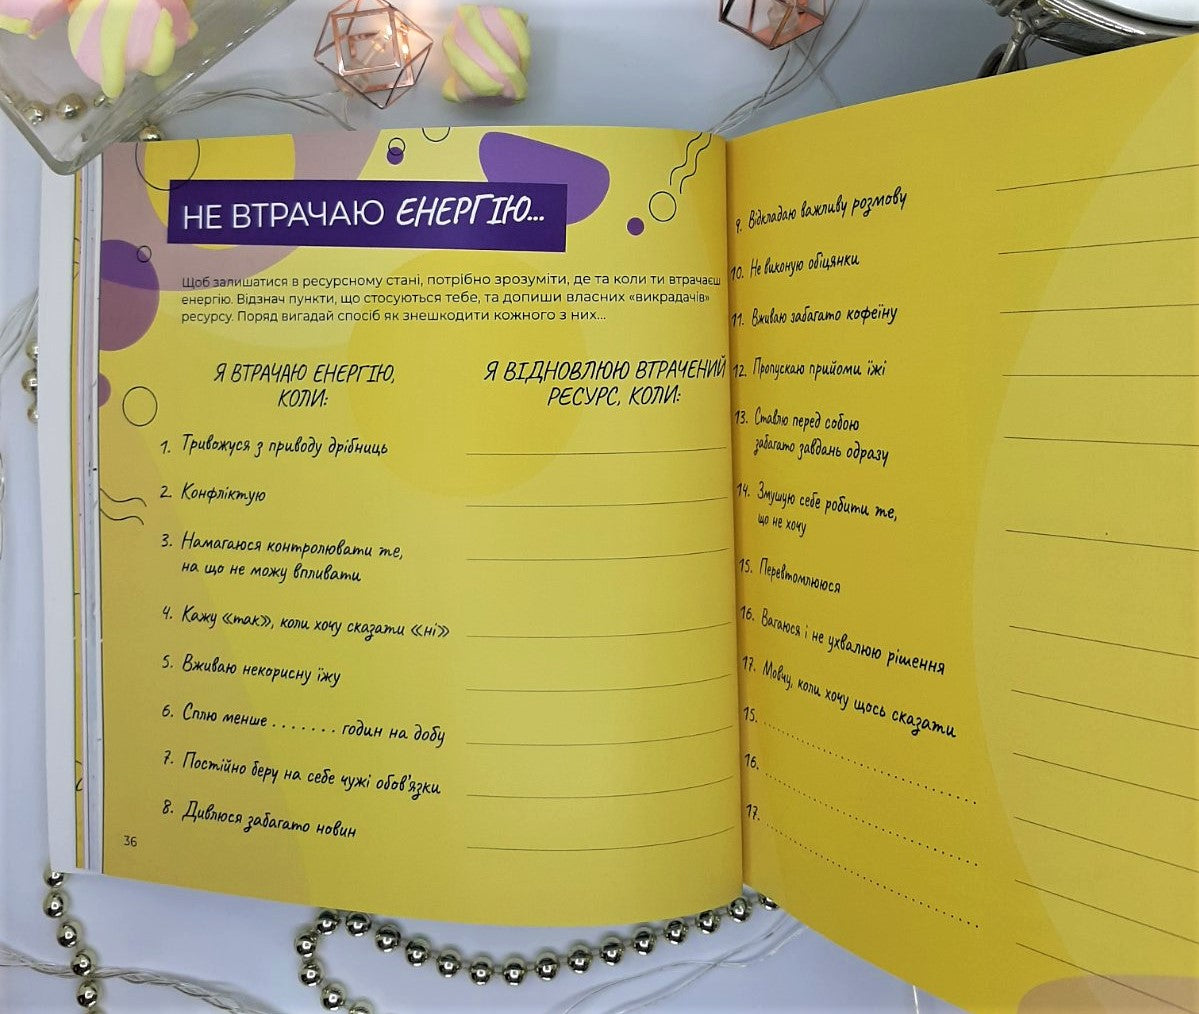 НЕ ВТРАЧАЮ ЕНЕРГІЮ...
Щоб залишатися в ресурсному стані, потрібно зрозуміти, де та коли ти втрачаєш
енергію. Відзнач пункти, що стосуються тебе, та допиши власних «викрадачів»
ресурсу. Поряд вигадай спосіб як знешкодити кожного з них...
Я ВТРАЧАЮ ЕНЕРГІЮ,
КОЛИ:
Я ВІДНОВЛЮЮ ВТРАЧЕНИЙ
РЕСУРС, КОЛИ:
1. Тривожуся з приводу дрібниць
2. Конфліктую
3. Намагаюся контролювати те,
на що не можу впливати
4. Кажу «так», коли хочу сказати «ні»
5. Вживаю некорисну їжу
6. Сплю менше ....... годин на добу
7. Постійно беру на себе чужі обов'язки
8. Дивлюся забагато новин
36
9. Відкладаю важливу розмову
10. Не виконую обіцянки
11. Вживаю забагато кофеїну
12. Пропускаю прийоми їжі
13. Ставлю перед собою
забагато завдань одразу
14. Змушую себе робити те,
що не хочу
15. Перевтомлююся
16. Вагаюся і не ухвалюю рішення
17. Мовчу, коли хочу щось сказати
15.
16.
17.